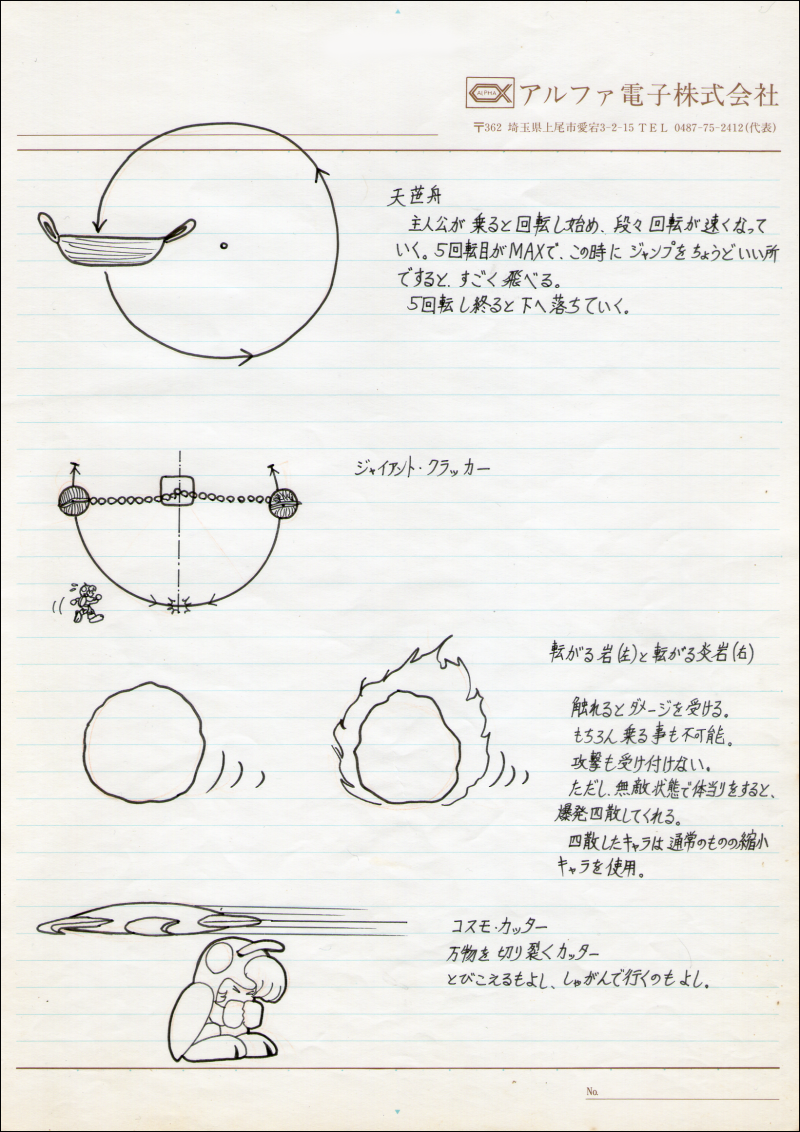 ALPHA
アルファ電子株式会社
〒362 埼玉県上尾市愛宕3-2-15 TEL 0487-75-2412(代表)
天笹舟
主人公が乗ると回転し始め、段々回転が速くなって
いく。5回転目がMAXで、この時にジャンプをちょうどいい所
ですると、すごく飛べる。
5回転し終ると下へ落ちていく。
ジャイアント・クラッカー
転がる岩(左)と転がる炎岩(右)
触れるとダメージを受ける。
もちろん乗る事も不可能。
攻撃も受け付けない。
ただし、無敵状態で体当りをすると、
爆発四散してくれる。
四散したキャラは通常のものの縮小
キャラを使用。
コスモ・カッター
万物を切り裂くカッター
とびこえるもよし、しゃがんで行くのもよし。
No.